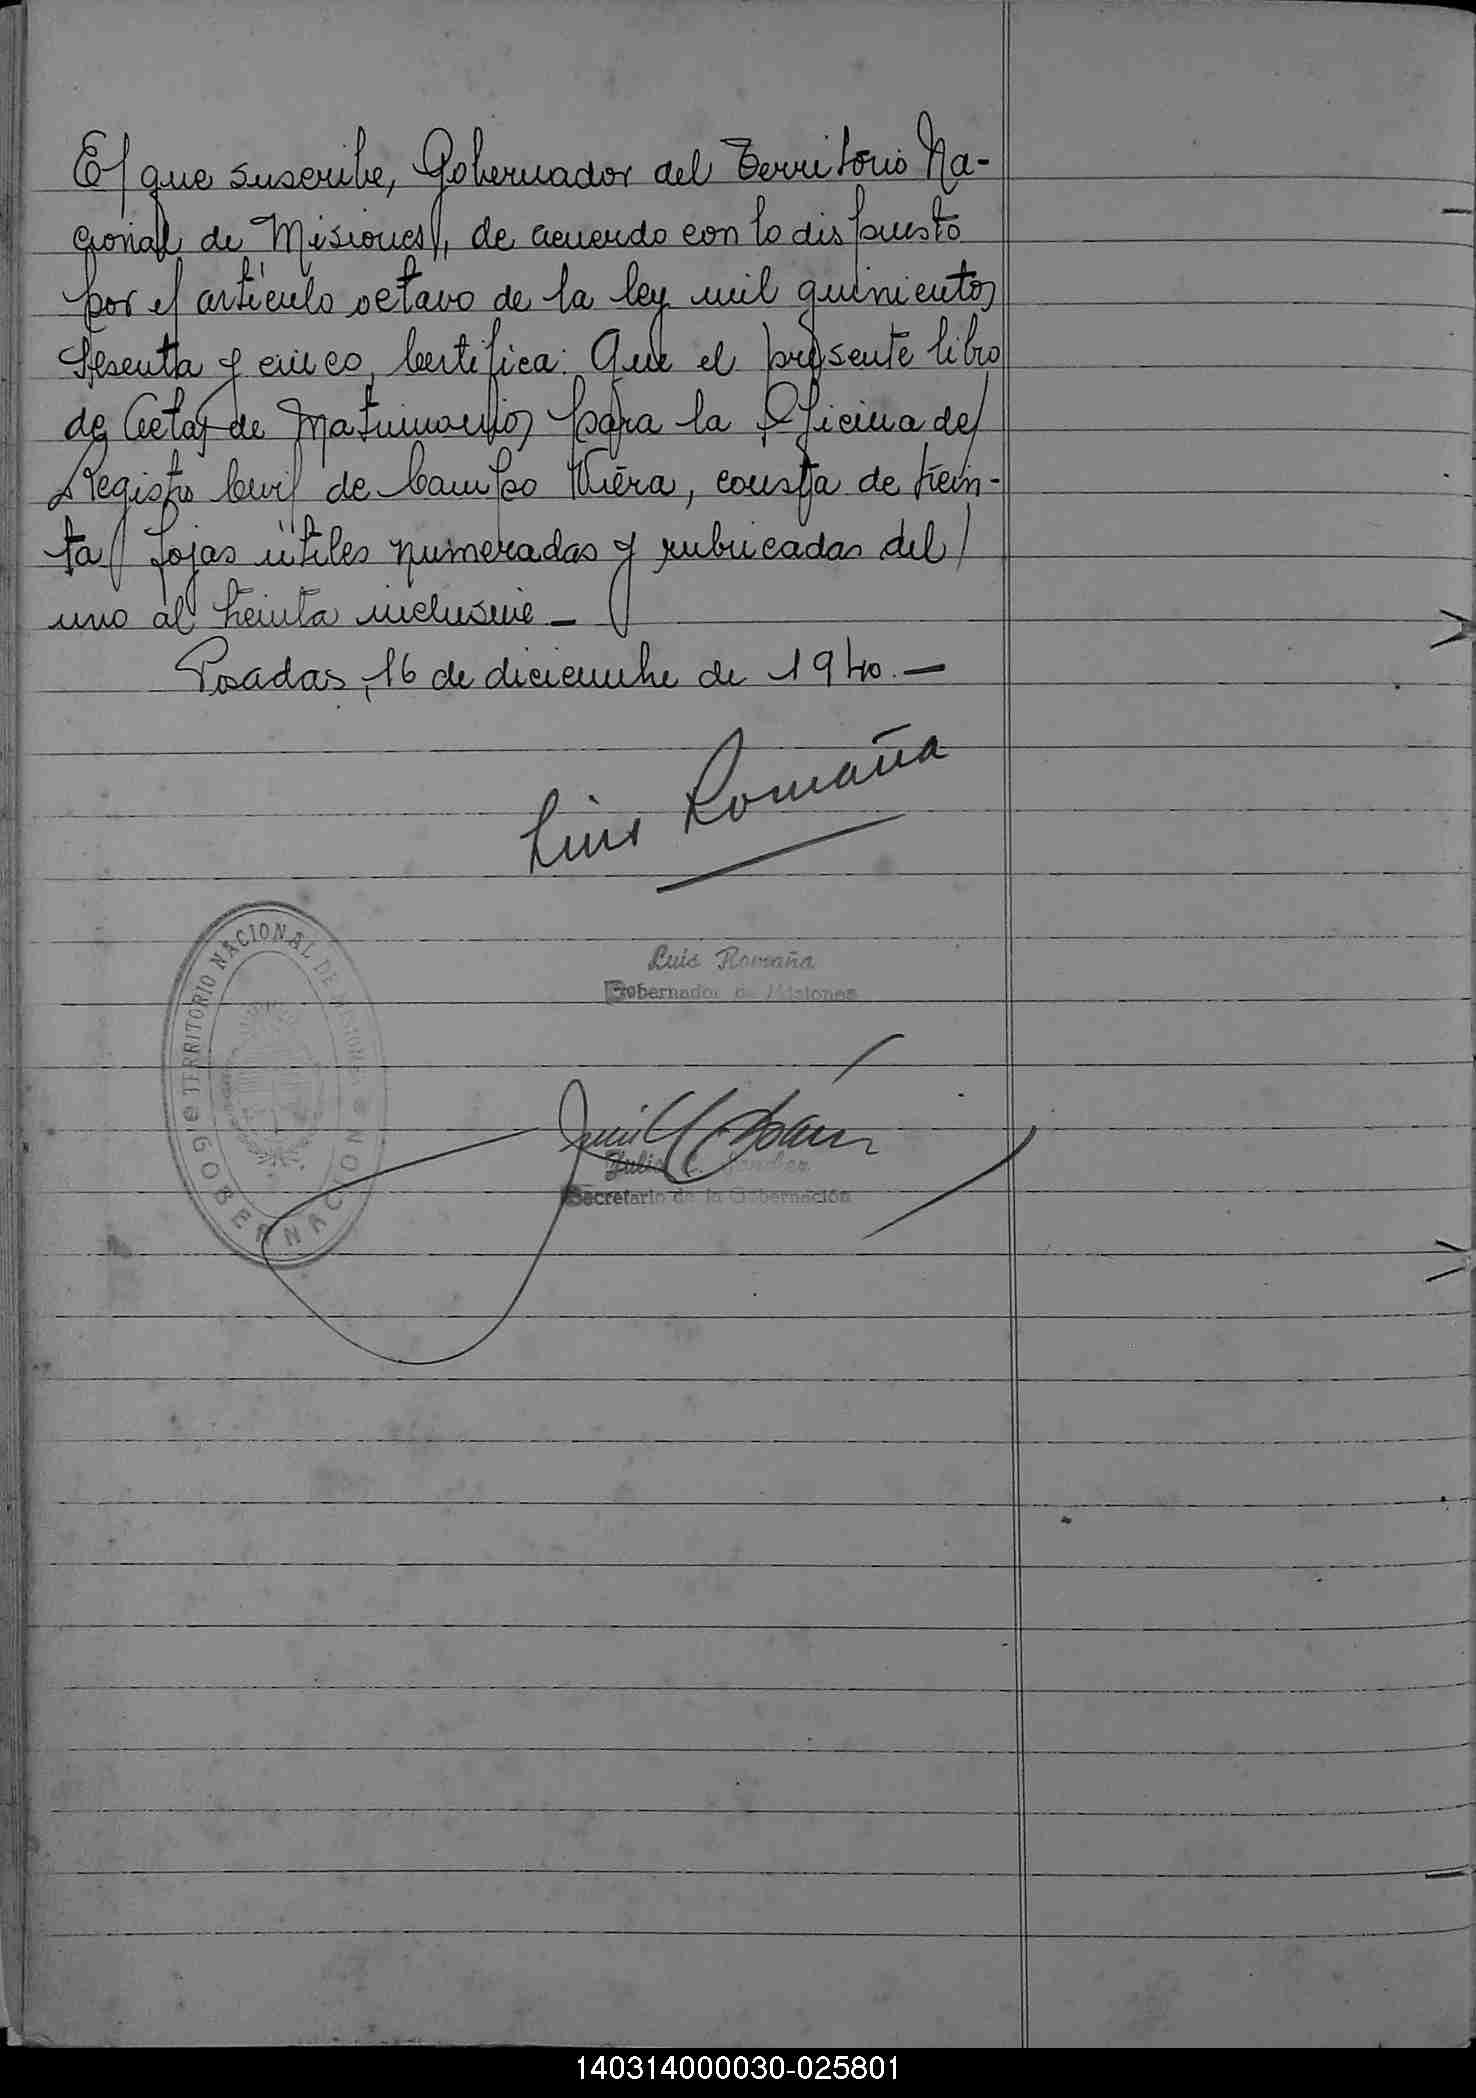 El que suscribe, Gobernador del Territorio Na-
cional de Misiones, de acuerdo con lo dispuesto
por el artículo octavo de la ley mil quinientos
sesenta y cinco, Certifica: Que el presente libro
de Actas de Matrimonios para la Oficina del
Registro Civil de Campo Viera, consta de trein-
ta fojas útiles numeradas y rubricadas del
uno al treinta inclusive _
Posadas, 16 de diciembre de 1940. —
Luis Romaña
TERRITORIO NACIONAL DE MISIONES
GOBERNACION
Luis Romaña
Gobernador de Misiones
Julio
Secretario de la Gobernación
140314000030-025801